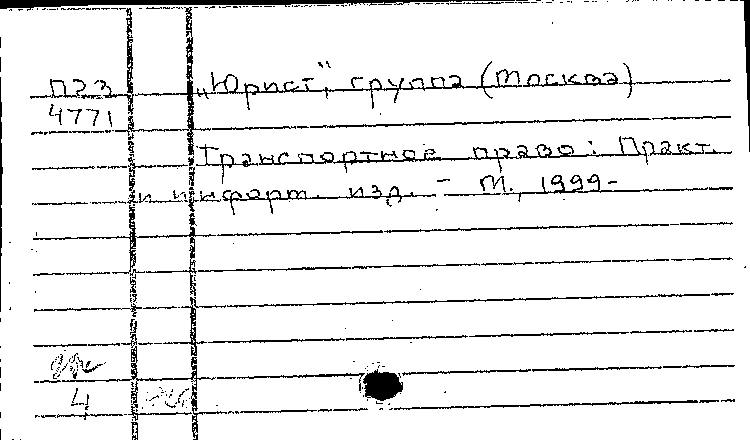 П23 „Юрист", группа (Москва)
4771
Транспортное право: Практ.
и информ. изд. – М., 1999-
4